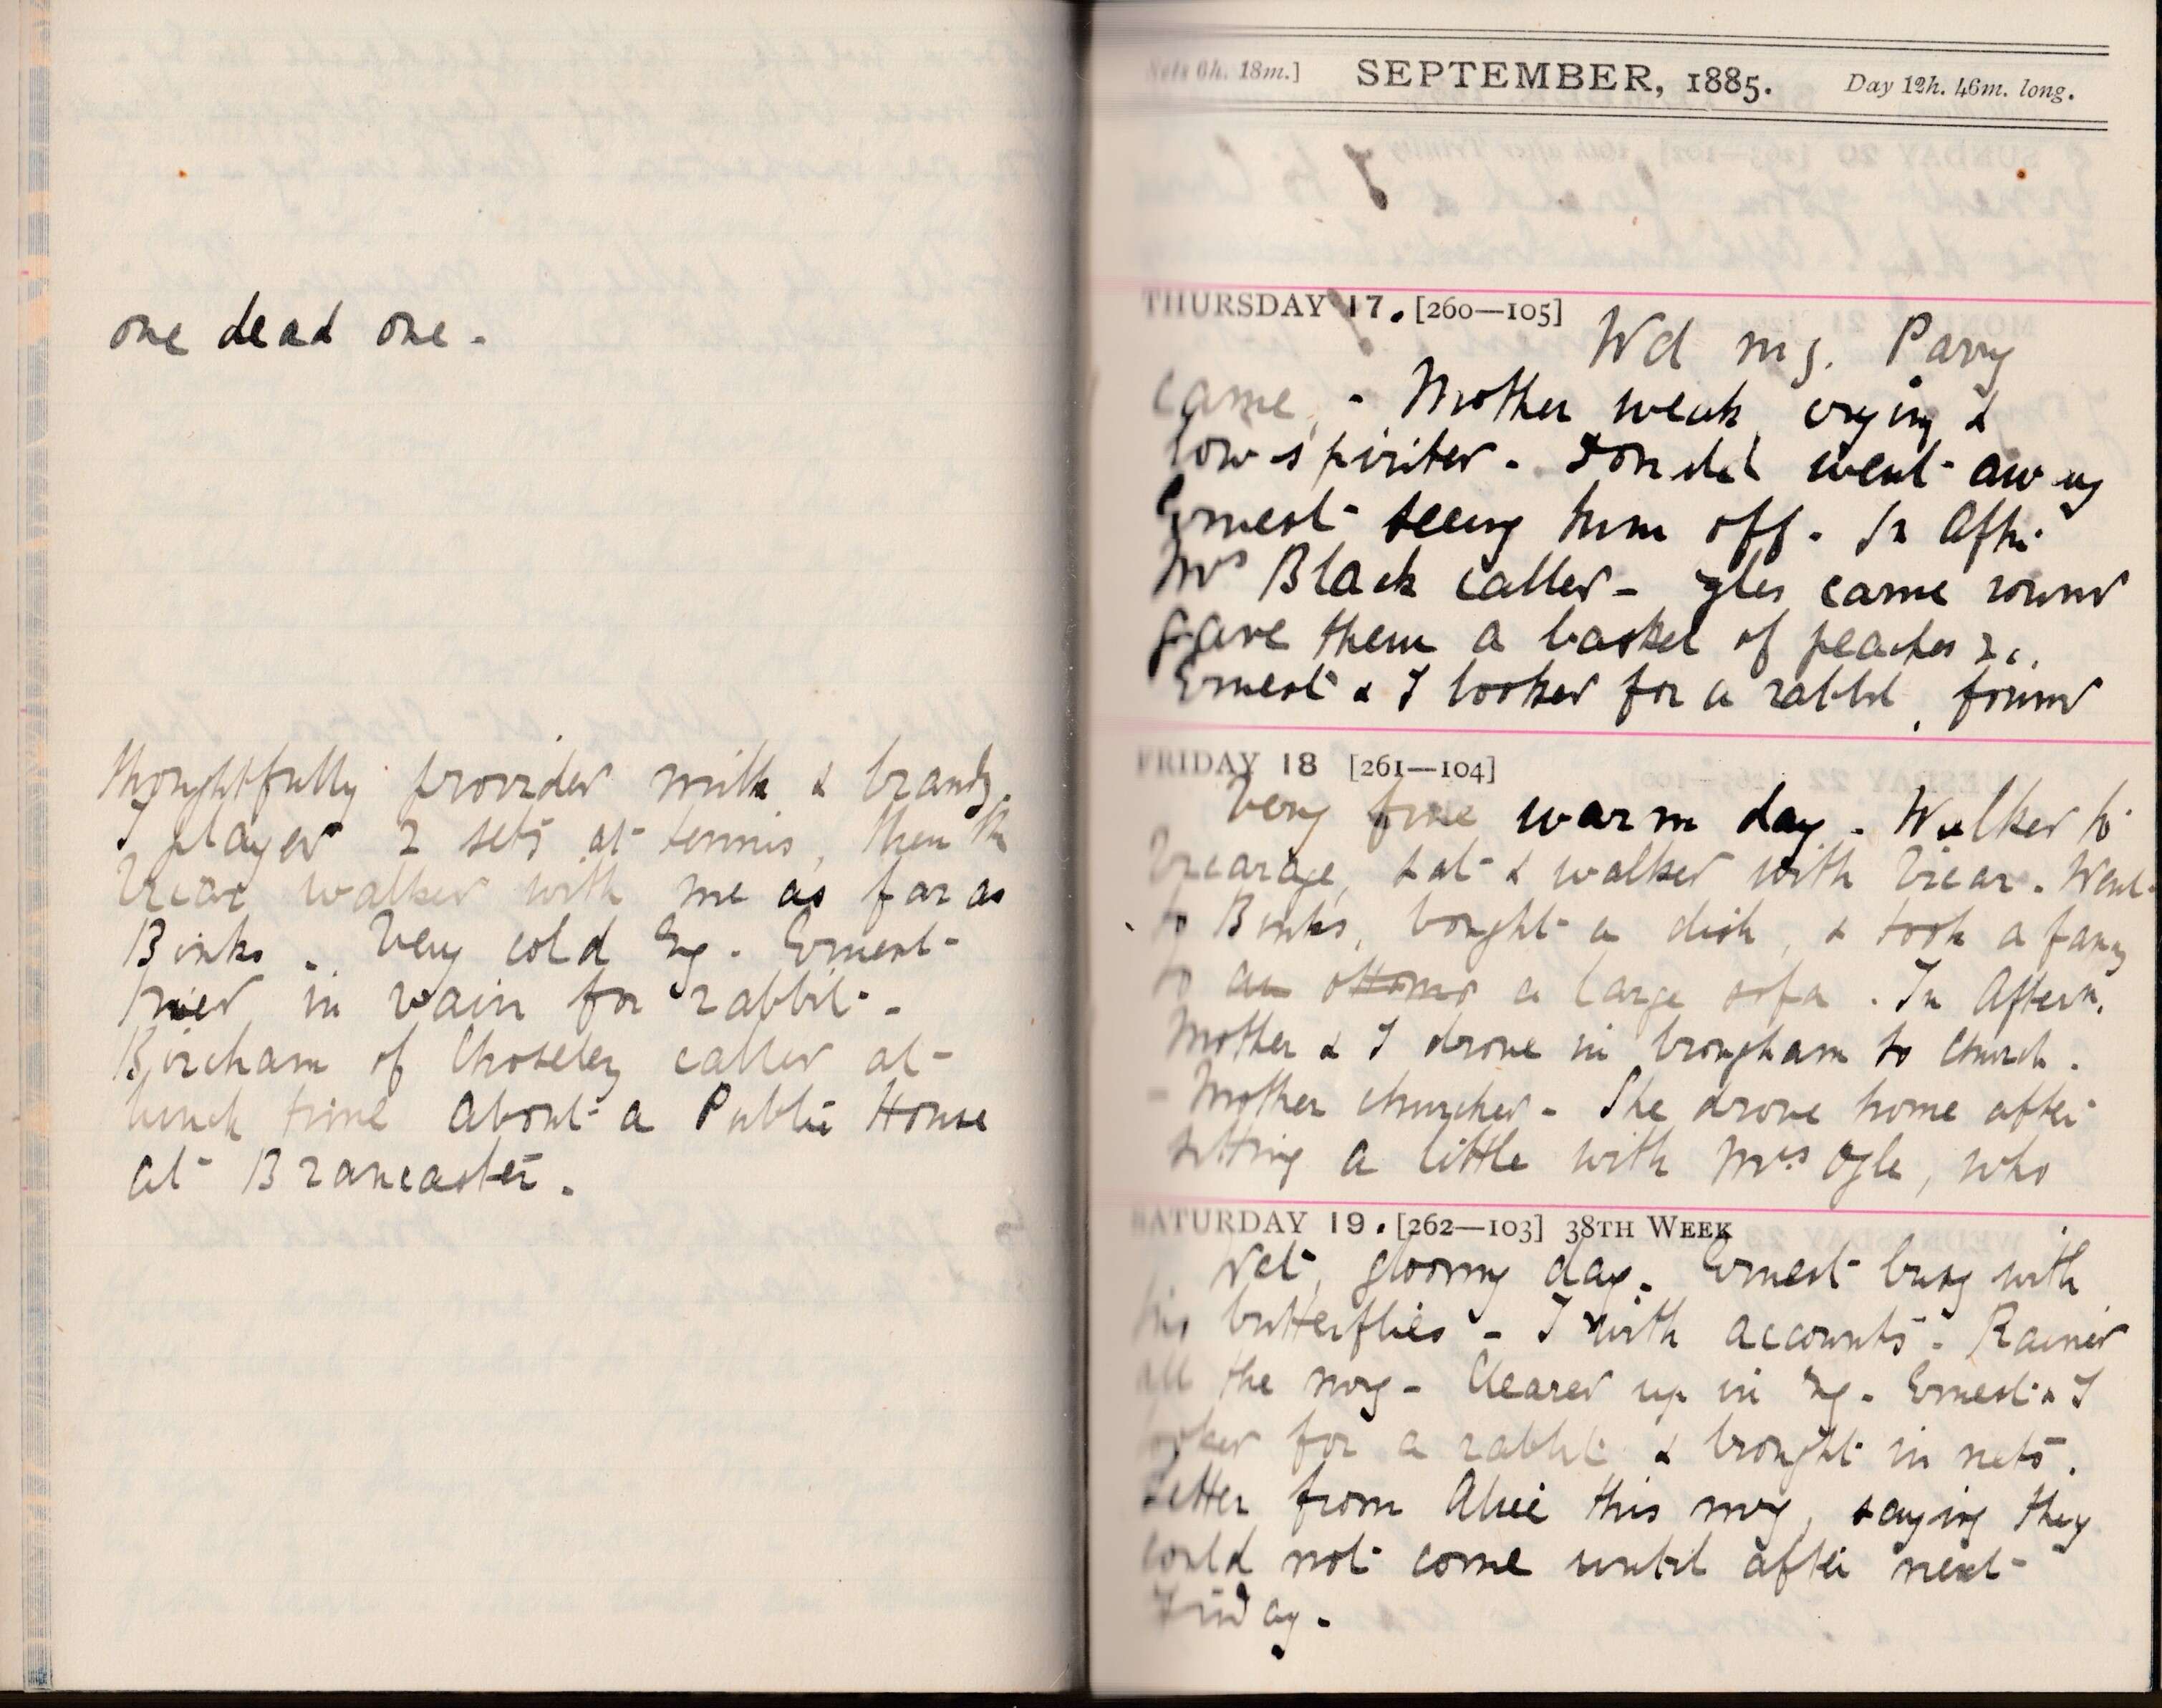 one dead one.
thoughtfully provided milk & brandy.
I played 2 sets at tennis, then the
Vicar walked with me as far as
Binks. Very cold Evg. Ernest
tried in vain for rabbit -
Bircham of Choseley called at
lunch time about a Public House
at Brancaster.
Sets 6h. 18m.] SEPTEMBER, 1885. Day 12h. 46m. long.
THURSDAY 17. [260—105]
Wd mg. Parry
came, - Mother weak, crying &
low-spirited. Donald went away
Ernest seeing him off. In Aftn.
Mrs Black called - Ogles came round
gave them a basket of peaches &c.
Ernest & I looked for a rabbit, found
FRIDAY 18 [261—104]
Very fine warm day. Walked to
Vicarage, sat & walked with Vicar. Went
to Binks, bought a dish, & took a fancy
to an ottoman a large sofa. In Aftern.
Mother & I drove in brougham to Church.
- Mother churched - She drove home after
sitting a little with Mrs Ogle, who
SATURDAY 19. [262—103] 38TH WEEK
Wet, gloomy day. Ernest busy with
his butterflies - I with accounts - Rained
all the mng - Cleared up in Evg - Ernest & I
looked for a rabbit & brought in nets.
Letter from Alice this mng, saying they
could not come until after next
Friday.